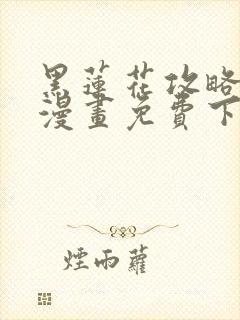 黑蓮花攻略
漫畫免費下
煙雨蘿